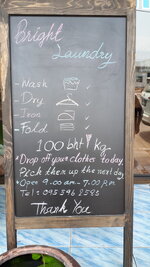 Bright
Laundry
- Wash ✓
- Dry ✓
- Iron ✓
- Fold ✓
100 bht kg-
• Drop off your clothes today
Pick them up the next day
• Open 9-00 am - 7.00 P.m
Tel: 095 546 2598
Thank You